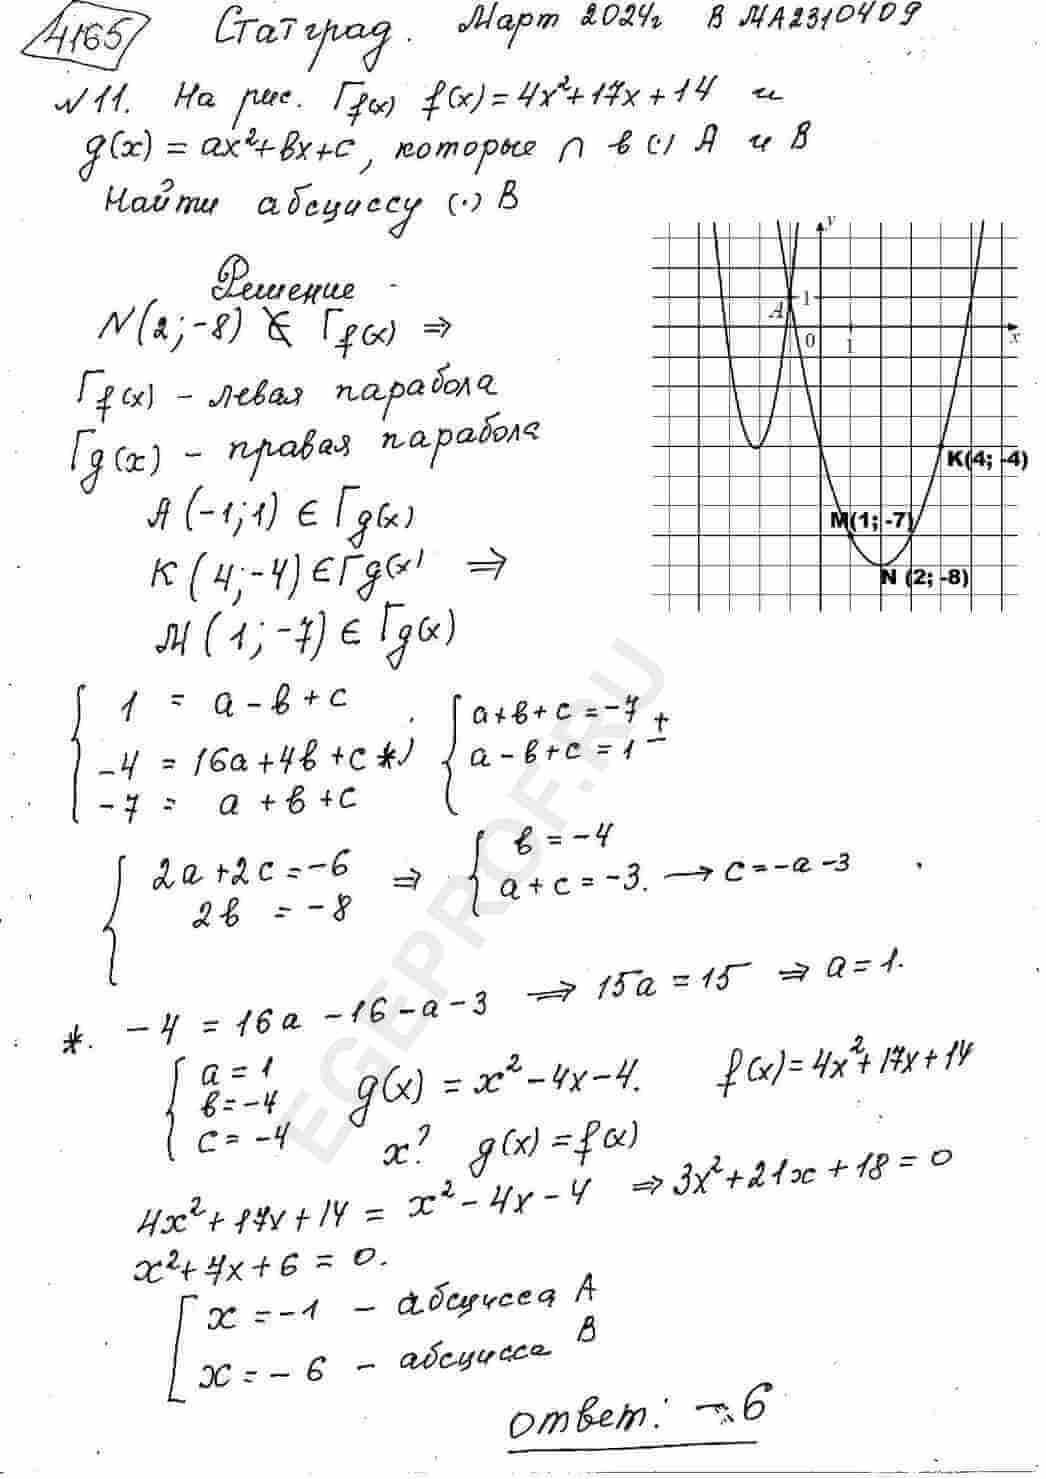 4165 Статград. Март 2024г В МА2310409
№11. На рис. Гf(x) f(x)=4x²+17x+14 и
g(x)=ax²+вx+c, которые ∩ в (·) А и В
Найти абсциссу (·) В
Решение
N(2;-8) ∉ Гf(x) ⇒
Гf(x) - левая парабола
Гg(x) - правая парабола
A(-1;1) ∈ Гg(x)
K(4;-4) ∈ Гg(x) ⇒
M(1;-7) ∈ Гg(x)
y
A
1
0
1
x
K(4; -4)
M(1; -7)
N (2; -8)
1 = a-в+c
-4 = 16a+4в+c *)
-7 = a+в+c
a+в+c=-7 +
a-в+c=1 -
2a+2c=-6
2в = -8
⇒
в=-4
a+c=-3. → c=-a-3
*. -4 = 16a-16-a-3 ⇒ 15a=15 ⇒ a=1.
a=1
в=-4
c=-4
g(x)=x²-4x-4. f(x)=4x²+17x+14
x? g(x)=f(x)
4x²+17x+14 = x²-4x-4 ⇒ 3x²+21x+18=0
x²+7x+6=0.
x=-1 - абсцисса А
x=-6 - абсцисса В
ответ: -6
EGEPROF.RU